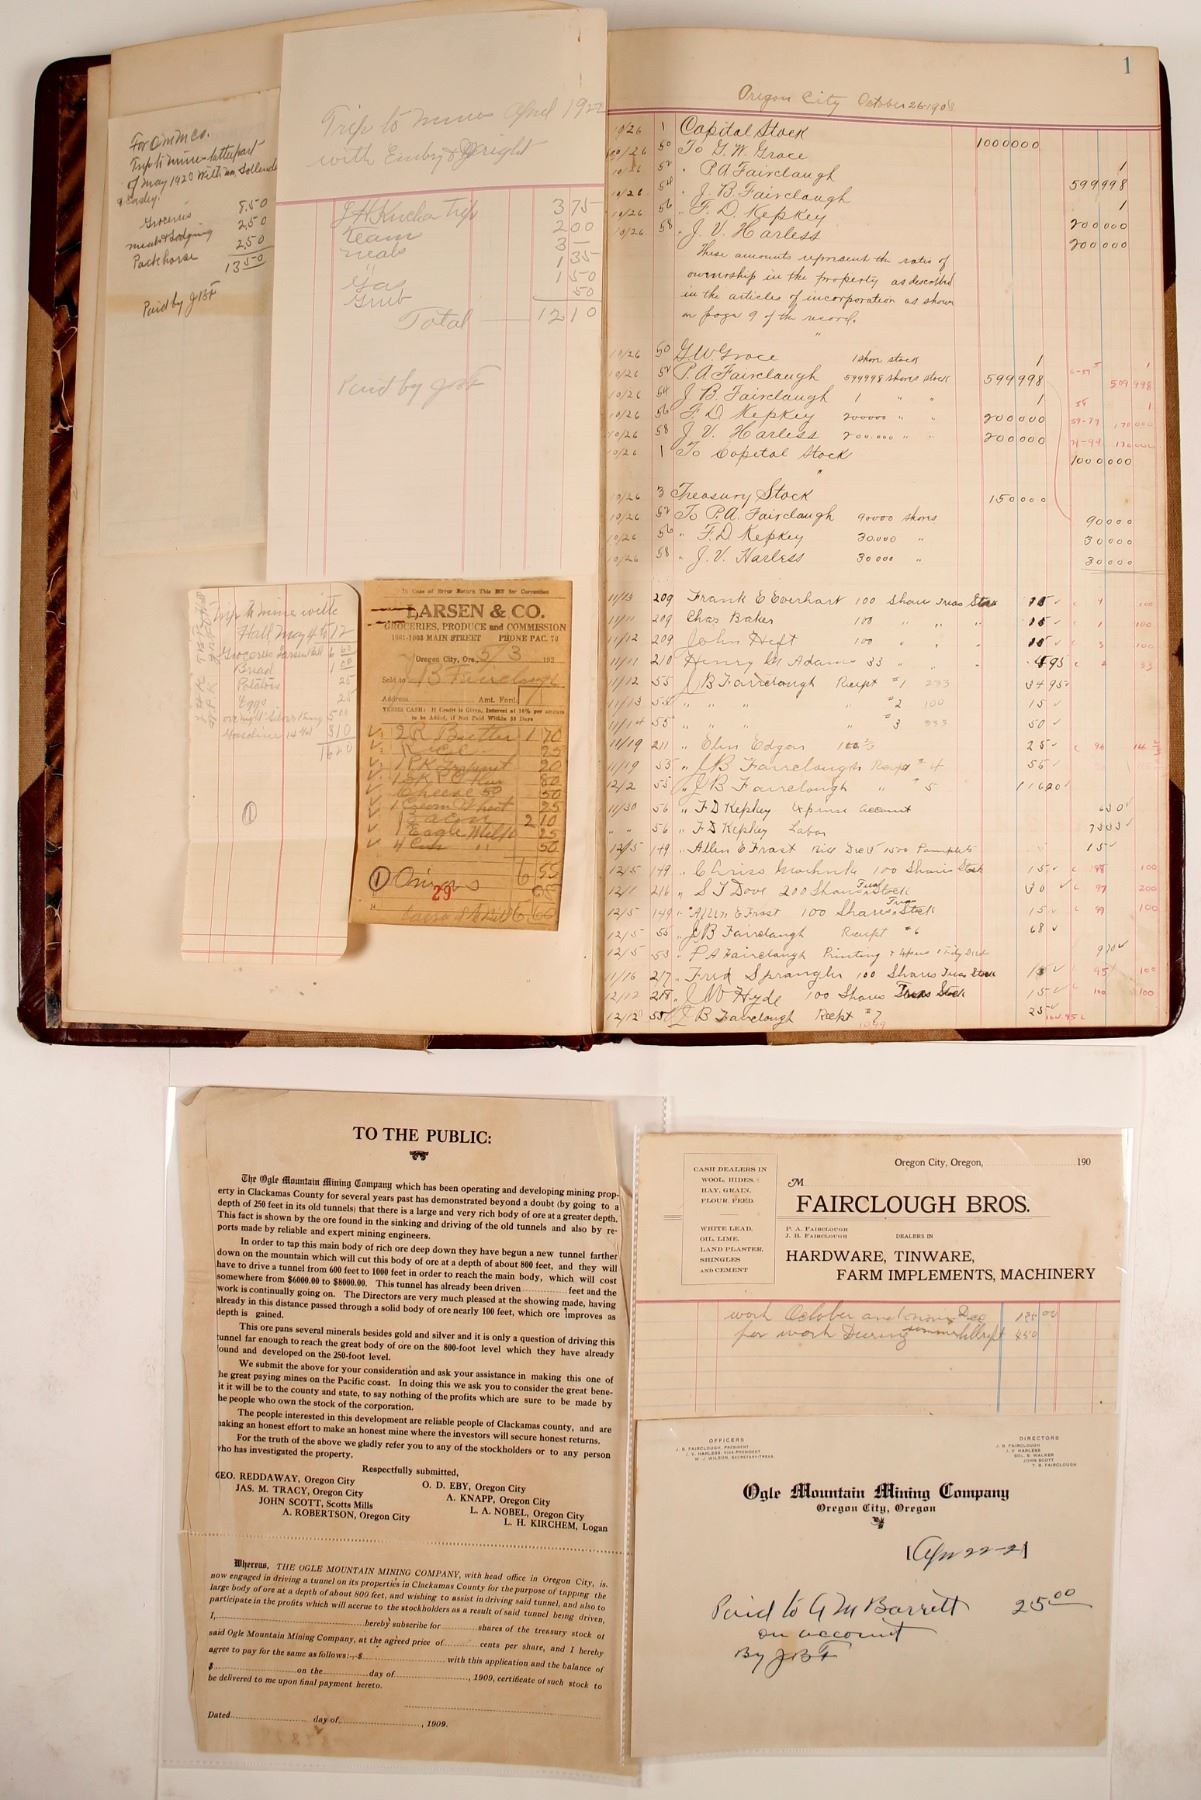 For O M M Co.
Trip to mine latter part
of May 1920 with
& Easley.
Groceries 8.50
meals & Lodging 2.50
Pack horse 2.50
13.50
Paid by JBF
Trip to mines April 1922
with Emby & Wright
Trip 3 75
Team 2 00
meals 3 —
" 1 35
Gas 1 50
Grub 50
Total 12 10
Paid by JBF
Trip to mine with
Hall May 4 to 12
Groceries Larsen bill 6 60
Bread 1 00
Potatoes 25
Eggs 25
Gasoline 3 10
16 20
1
In Case of Error Return This Bill for Correction
LARSEN & CO.
GROCERIES, PRODUCE and COMMISSION
1001-1003 MAIN STREET PHONE PAC. 70
Oregon City, Ore., 5/3 192
Sold to J B Fairclough
Address Amt. Ford.
TERMS CASH: If Credit is Given, Interest at 10% per annum
to be Added, if Not Paid Within 30 Days
2 R Butter 1 70
Rice 25
1 PK 20
1 SK P C Flour 80
Cheese 50 50
1 Cream Wheat 25
1 Bacon 2 10
1 Eagle Milk 25
4 Can " 50
6 55
1 Onions 05
29
6 60
1
Oregon City October 26-1908
10/26 1 Capital Stock 1000000
10/26 50 To G. W. Grace 1
10/26 52 " P. A Fairclough 599998
10/26 54 " J. B. Fairclough 1
10/26 56 " F. D. Kepkey 200000
10/26 58 " J. V. Harless 200000
These amounts represent the ratio of
ownership in the property as described
in the articles of incorporation as shown
on page 9 of the record.
10/26 50 G. W. Grace 1 share stock 1
10/26 52 P. A Fairclough 599998 shares stock 599998
10/26 54 J B. Fairclough 1 " " 1
10/26 56 F. D. Kepkey 200000 " " 200000
10/26 58 J. V. Harless 200.000 " " 200000
10/26 1 To Capital Stock 1000000
10/26 3 Treasury Stock 150000
10/26 52 To P. A. Fairclough 90000 shares 90000
10/26 56 " F. D Kepkey 30.000 " 30000
10/26 58 " J. V. Harless 30000 " 30000
11/13 209 Frank E Everhart 100 Shares Treas Stock 15
11/11 209 Chas Baker 100 " " " 15
11/12 209 John Heft 100 " " " 15
11/11 210 Henry M Adams 33 " " 4 95
11/12 55 J B Fairclough Receipt #1 233 34 95
11/13 55 " " " #2 100 15
11/14 55 " " " #3 333 50
11/19 211 " Edgar 25
11/19 55 " J B Fairclough Receipt #4 55
12/2 55 " J B Fairclough " 5 116 20
11/30 56 " F D Kepkey Expense Account 630
" " 56 " F D Kepkey Labor 7333
12/5 149 " Allen E Frost 1500 Pamphlets 15
12/5 149 " Chriss 100 Shares Stock 15 100
12/1 216 " S T Dove 200 Shares Treas Stock 30 200
12/5 149 " Allen E Frost 100 Shares Treas Stock 15 100
12/5 55 " J B Fairclough Receipt #6 68
12/5 53 " P A Fairclough Printing 970
11/16 217 " Fred Sprangler 100 Shares Treas Stock 15 100
12/12 218 " J W Hyde 100 Shares Treas Stock 15 100
12/12 55 " J B Fairclough Recpt #7 25
TO THE PUBLIC:
The Ogle Mountain Mining Company which has been operating and developing mining prop-
erty in Clackamas County for several years past has demonstrated beyond a doubt (by going to a
depth of 250 feet in its old tunnels) that there is a large and very rich body of ore at a greater depth.
This fact is shown by the ore found in the sinking and driving of the old tunnels and also by re-
ports made by reliable and expert mining engineers.
In order to tap this main body of rich ore deep down they have begun a new tunnel farther
down on the mountain which will cut this body of ore at a depth of about 800 feet, and they will
have to drive a tunnel from 600 feet to 1000 feet in order to reach the main body, which will cost
somewhere from $6000.00 to $8000.00. This tunnel has already been driven.............feet and the
work is continually going on. The Directors are very much pleased at the showing made, having
already in this distance passed through a solid body of ore nearly 100 feet, which ore improves as
depth is gained.
This ore pans several minerals besides gold and silver and it is only a question of driving this
tunnel far enough to reach the great body of ore on the 800-foot level which they have already
found and developed on the 250-foot level.
We submit the above for your consideration and ask your assistance in making this one of
he great paying mines on the Pacific coast. In doing this we ask you to consider the great bene-
it it will be to the county and state, to say nothing of the profits which are sure to be made by
he people who own the stock of the corporation.
The people interested in this development are reliable people of Clackamas county, and are
naking an honest effort to make an honest mine where the investors will secure honest returns.
For the truth of the above we gladly refer you to any of the stockholders or to any person
who has investigated the property.
Respectfully submitted,
GEO. REDDAWAY, Oregon City
JAS. M. TRACY, Oregon City
JOHN SCOTT, Scotts Mills
A. ROBERTSON, Oregon City
O. D. EBY, Oregon City
A. KNAPP, Oregon City
L. A. NOBEL, Oregon City
L. H. KIRCHEM, Logan
Whereas, THE OGLE MOUNTAIN MINING COMPANY, with head office in Oregon City, is.
now engaged in driving a tunnel on its properties in Clackamas County for the purpose of tapping the
large body of ore at a depth of about 800 feet, and wishing to assist in driving said tunnel, and also to
participate in the profits which will accrue to the stockholders as a result of said tunnel being driven,
I,..............................hereby subscribe for..........shares of the treasury stock of
said Ogle Mountain Mining Company, at the agreed price of..........cents per share, and I hereby
agree to pay for the same as follows:-,-$....................with this application and the balance of
$....................on the............day of...................., 1909, certificate of such stock to
be delivered to me upon final payment hereto.
Dated.................... day of...................., 1909.
CASH DEALERS IN
WOOL, HIDES,
HAY, GRAIN,
FLOUR, FEED
WHITE LEAD,
OIL, LIME,
LAND PLASTER,
SHINGLES
AND CEMENT
Oregon City, Oregon, 190
M
FAIRCLOUGH BROS.
P. A. FAIRCLOUGH
J. B. FAIRCLOUGH
DEALERS IN
HARDWARE, TINWARE,
FARM IMPLEMENTS, MACHINERY
work October and nov & Dec 125 00
for work During summer 450
OFFICERS
J. B. FAIRCLOUGH, PRESIDENT
J. V. HARLESS, VICE-PRESIDENT
W. J. WILSON, SECRETARY-TREAS.
DIRECTORS
J. B. FAIRCLOUGH
J. V. HARLESS
GEO. B. WALKER
JOHN SCOTT
T. B. FAIRCLOUGH
Ogle Mountain Mining Company
Oregon City, Oregon
Apr 22-21
Paid to A M Barrett 25 00
on account
By JBF